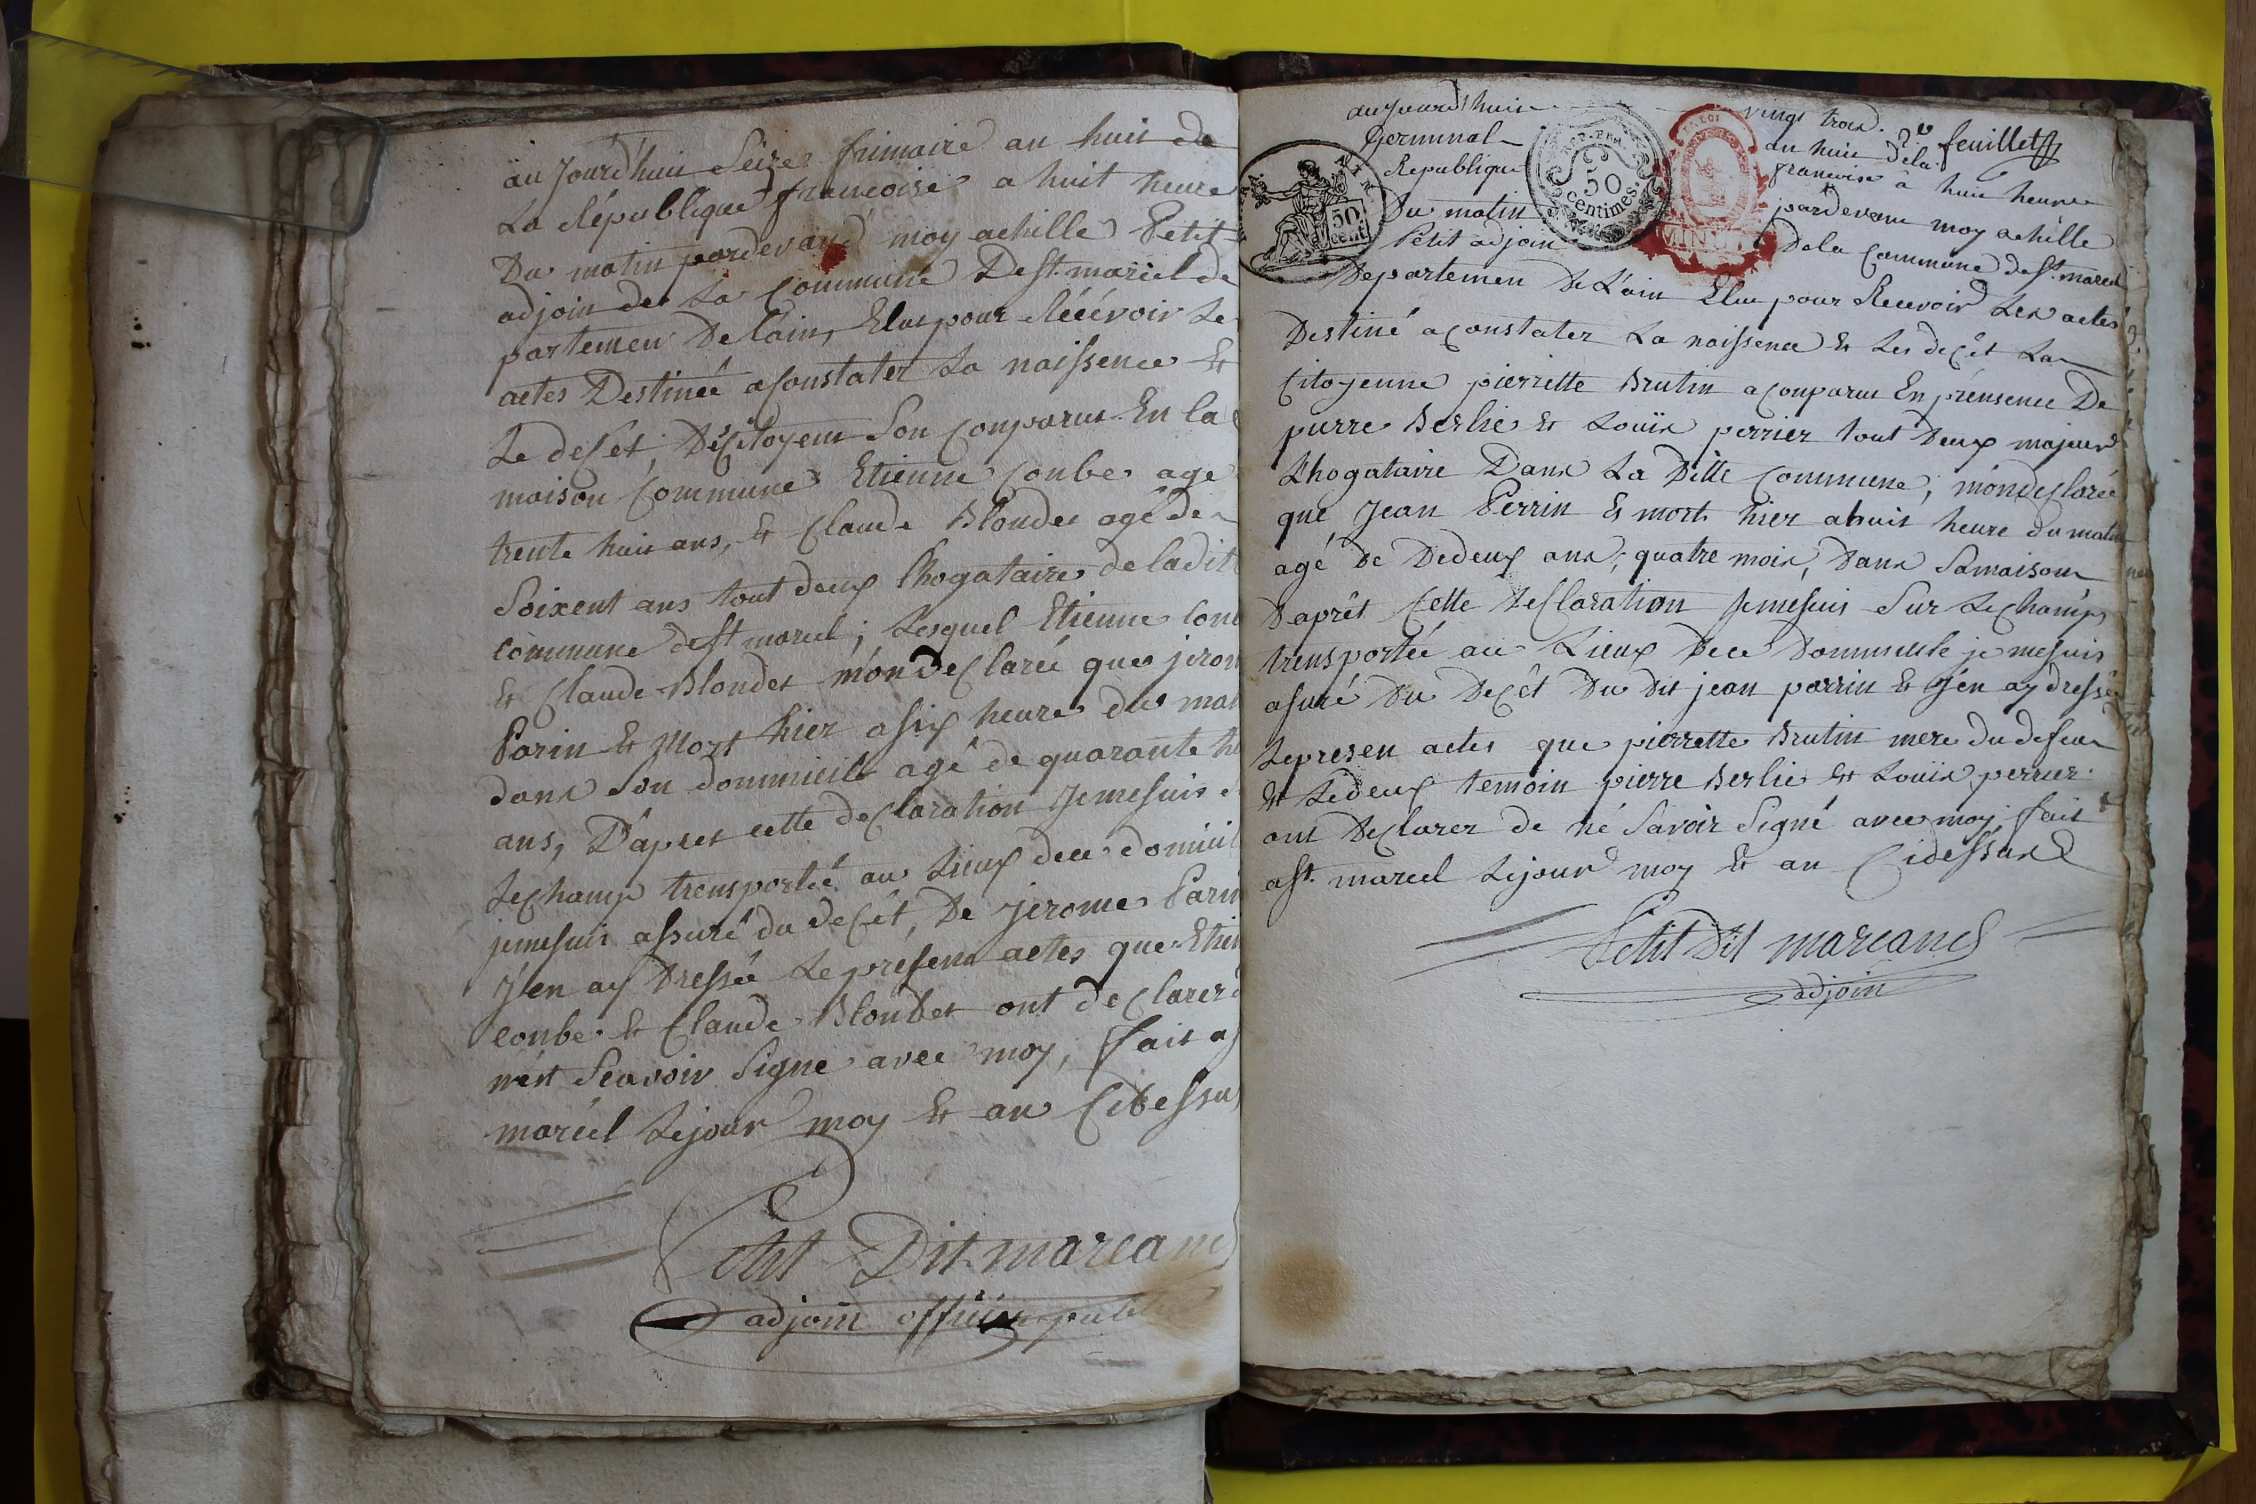 au Jourd'huis Seize frimaire an huit de
La République francoise a huit heure
Du matin pardevand moy achille Petit
adjoin de La Commune De St. marcel de
partemen De l'ain, Elus pour Récévoir Le
actes Destinée a Constater La naissence Et
Le decet, De Citoyens Son Conparus En la
maison Commune Etienne Conbe age
trente huis ans, Et Claude Blondet agé de
Soixent ans tout deux Lhogataire de ladite
commune de St marcel; Lesquel Etienne Con
Et Claude Blondet m'on declarée que jerom
Parin Et Mort hier a Six heure du mat
dans Son dommicile agé de quarante
ans, D'apret cette declaration Je me Suis
Le Champ trensportée au Lieux dece domicil
je me suis assuré du decêt, De jerome Parin
J'en ay Dressée Le presenn actes que Etien
Conbe Et Claude Blondet ont declarer
n'ert Seavoir Signe avec moy, fait a
marcel Le jour moy Et an Cidessu
Petit Dit marcand
adjoin officier public
aujourd'huis vingt trois
2e feuillet
Germinal an huis de la
Republique francoise à huis heure
Du matin pardevant moy achille
Petit adjoin De la Commune de St. marcel
Departemen De L'ain Elus pour Recevoir Les actes
Destiné a Constater La naissence Et Les decêt La
Citoyenne pierrette Brutin a Conparus En présence De
pierre Berlie Et Louïs perrier tout Deux majeur
Lhogataire Dans La Ditte Commune, m'on declarée
que Jean Perrin Es mort hier a huis heure du matin
agé De Dedeux ans, quatre mois, Dans Sa maison
D'aprêt Cette Declaration Je me suis Sur Le Champ
trensportée au Lieux Dece Dommicile je me suis
asuré Du Decêt Du Dit jean parrin Et J'en ay dressé
Le presen actes que pierrette Brutin mere du defeu
Et Le deux temoin pierre Berlie Et Louïs perrier
ont Declarer de né Savoir Signé avec moy fait
a St. marcel Le jour moy Et an Cidessus
Petit Dit marcand
adjoin
50 cent
REP. FRA.
50
centimes.